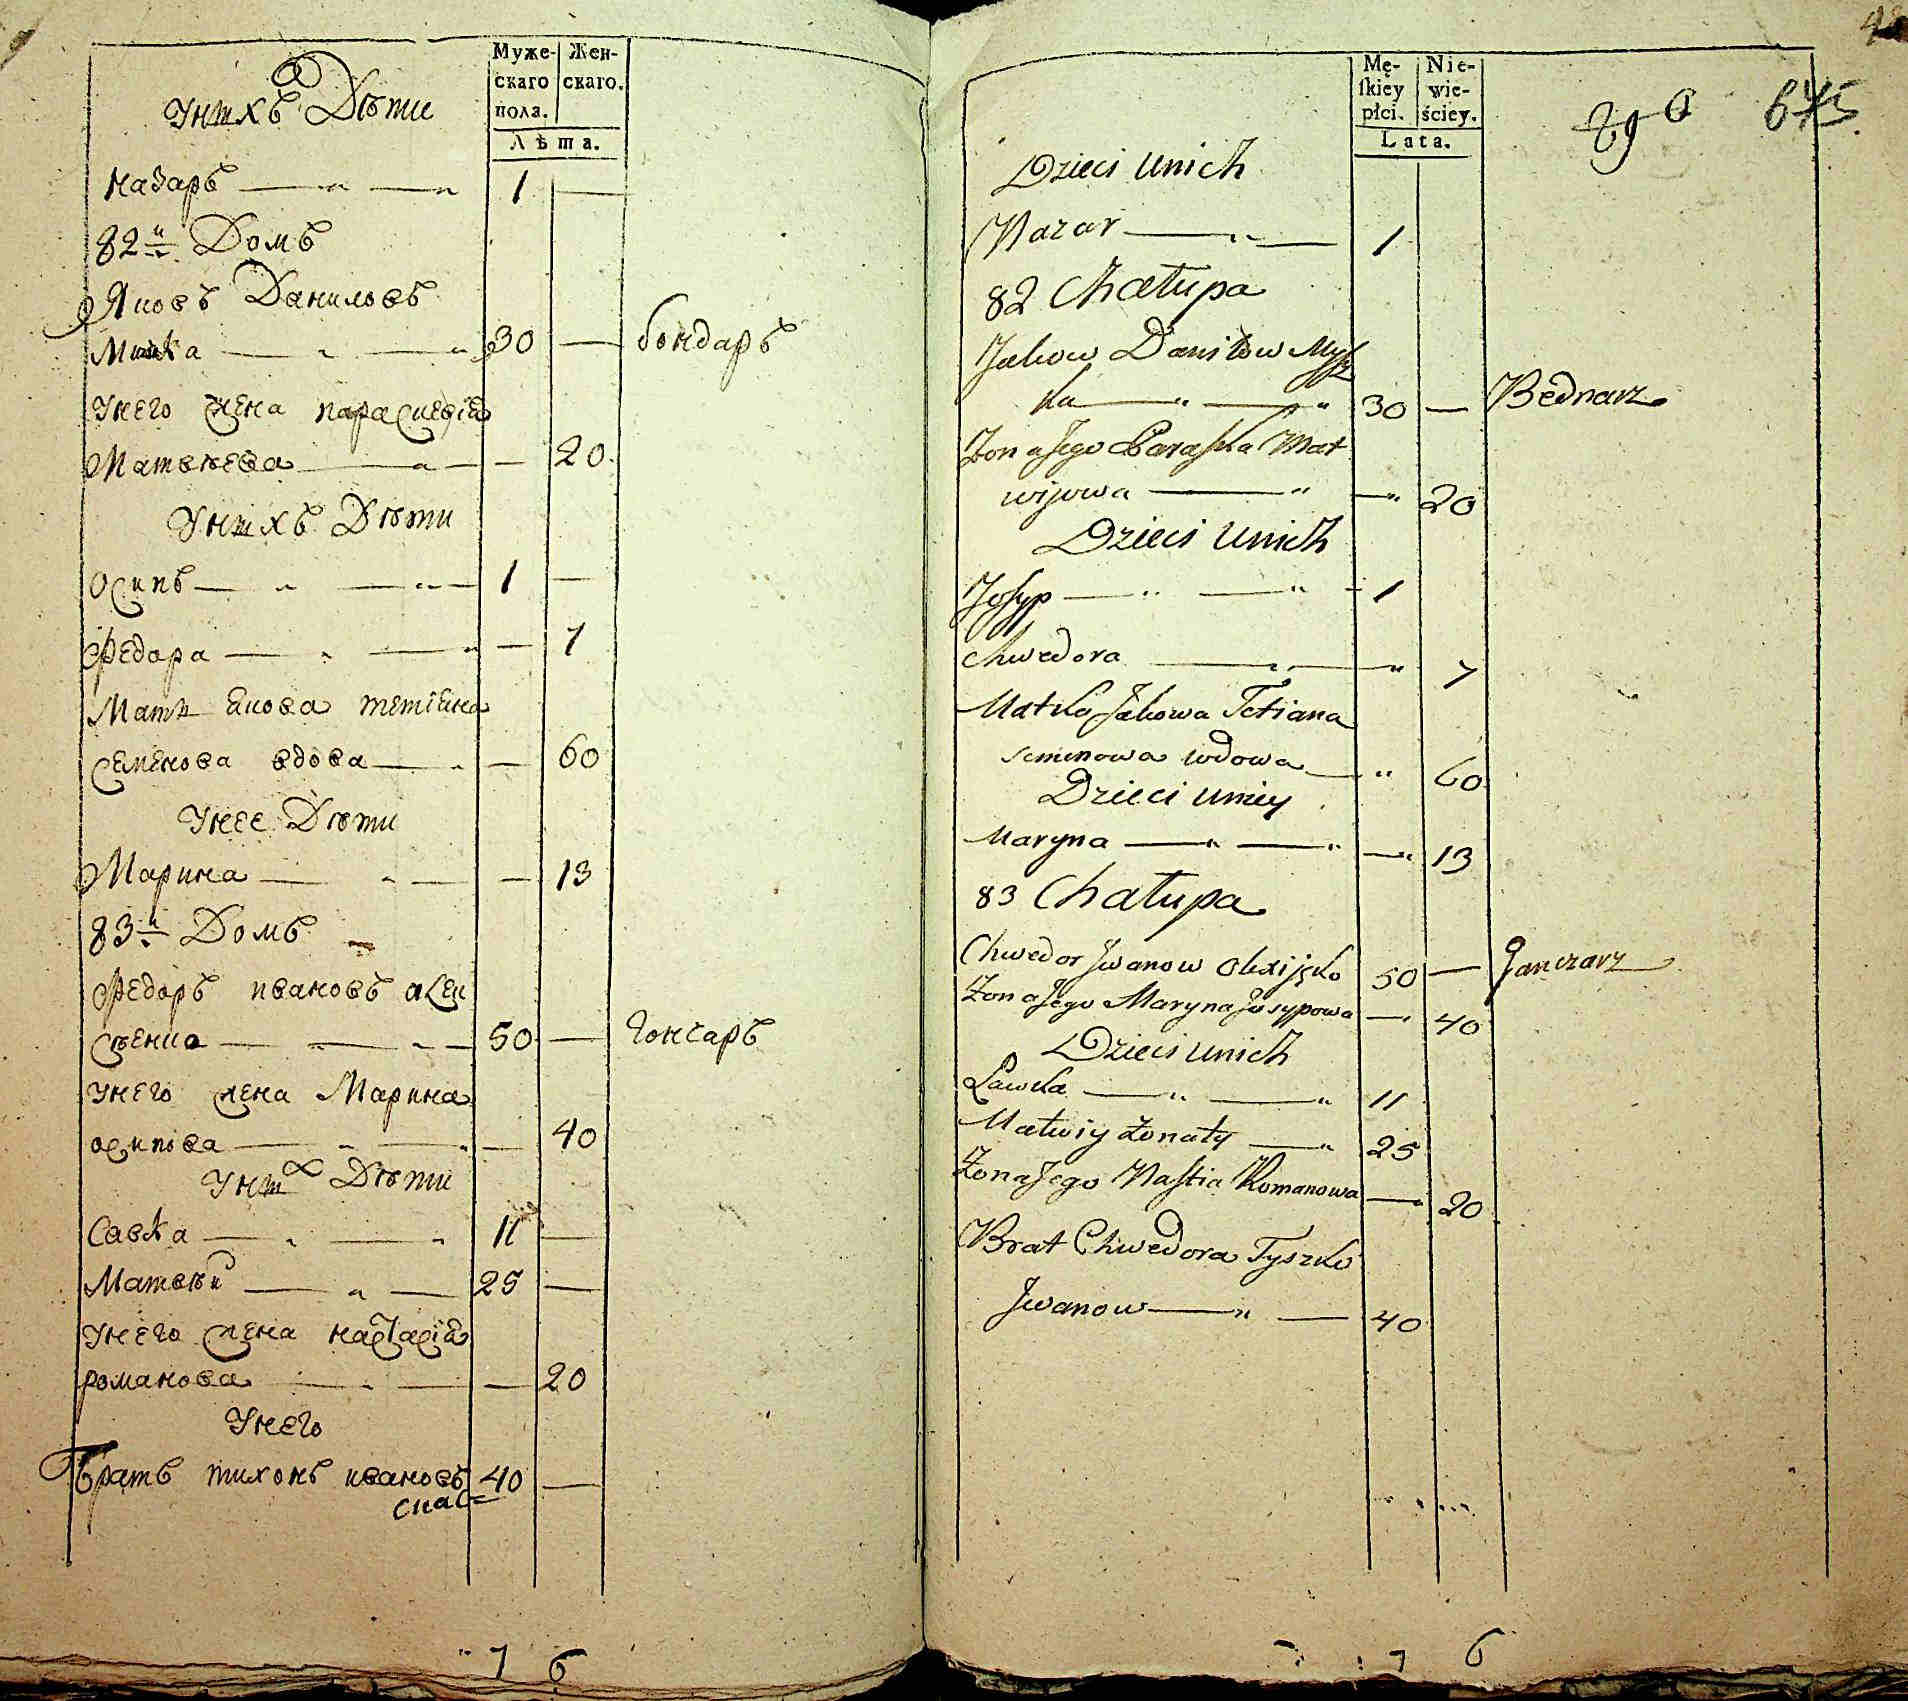 Муже-
скаго
пола.
Жен-
скаго.
Лѣта.
У нихъ Дѣти
назаръ 1
82й Домъ
Яковъ Даниловъ
Мишка 30 бондаръ
У него жена параскевія
Матвѣева 20
У нихъ Дѣти
Осипъ 1
Федора 7
Мать Якова тетіяна
семенова вдова 60
У нее Дѣти
Марина 13
83й Домъ
Федоръ ивановъ алек
сѣенко 50 гончаръ
У него жена Марина
осипова 40
У них Дѣти
Савка 11
Матвѣй 25
У него жена настасія
романова 20
У него
Братъ тихонъ ивановъ 40
7 6
Mę-
skiey
płci.
Nie-
wie-
ściey.
Lata.
645
Dzieci unich
Nazar 1
82 Chałupa
Jakow Daniłow Mysz
ka 30 Bednarz
Zona Jego Paraska Mat
wijowa 20
Dzieci unich
Josyp 1
Chwedora 7
Matka Jakowa Tetiana
semenowa wdowa 60
Dzieci uniey
Maryna 13
83 Chałupa
Chwedor Jwanow Olexijęko 50 Ganczarz
Zona Jego Maryna Josypowa 40
Dzieci unich
Sawka 11
Matwiy żonaty 25
Zona Jego Nastia Romanowa 20
Brat Chwedora Tyszko
Jwanow 40
7 6